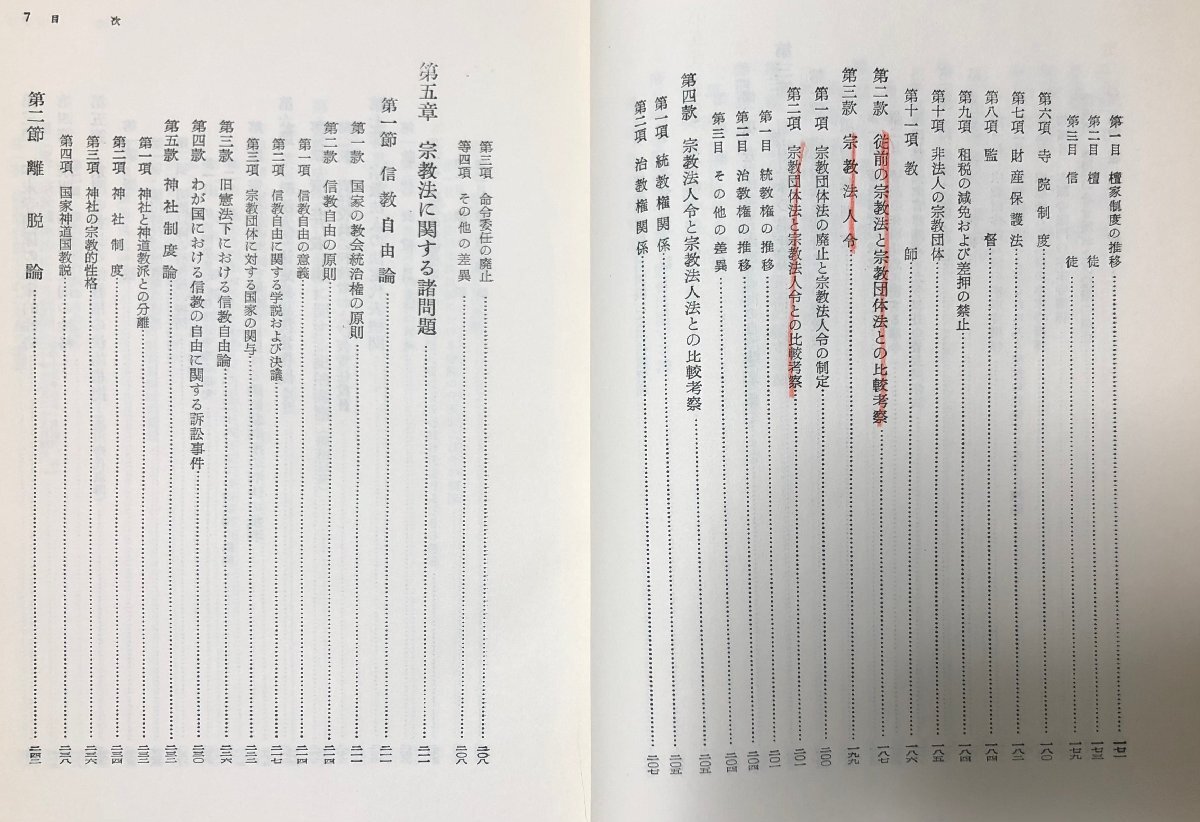 第一目 檀家制度の推移……一七一
第二目 檀徒……一七三
第三目 信徒……一七九
第六項 寺院制度……一八〇
第七項 財産保護法……一八二
第八項 監督……一八四
第九項 租税の減免および差押の禁止……一八四
第十項 非法人の宗教団体……一八五
第十一項 教師……一八六
第二款 従前の宗教法と宗教団体法との比較考察……一八七
第三款 宗教法人令……一九九
第一項 宗教団体法の廃止と宗教法人令の制定……二〇〇
第二項 宗教団体法と宗教法人令との比較考察……二〇一
第一目 統教権の推移……二〇一
第二目 治教権の推移……二〇四
第三目 その他の差異……二〇四
第四款 宗教法人令と宗教法人法との比較考察……二〇五
第一項 統教権関係……二〇五
第二項 治教権関係……二〇七
7 目次
第三項 命令委任の廃止……二〇八
等四項 その他の差異……二〇八
第五章 宗教法に関する諸問題……二一一
第一節 信教自由論……二一一
第一款 国家の教会統治権の原則……二一一
第二款 信教自由の原則……二一四
第一項 信教自由の意義……二一四
第二項 信教自由に関する学説および決議……二一七
第三項 宗教団体に対する国家の関与……二二三
第三款 旧憲法下における信教自由論……二二六
第四款 わが国における信教の自由に関する訴訟事件……二三〇
第五款 神社制度論……二三三
第一項 神社と神道教派との分離……二三三
第二項 神社制度……二三四
第三項 神社の宗教的性格……二三六
第四項 国家神道国教説……二三八
第二節 離脱論……二四二